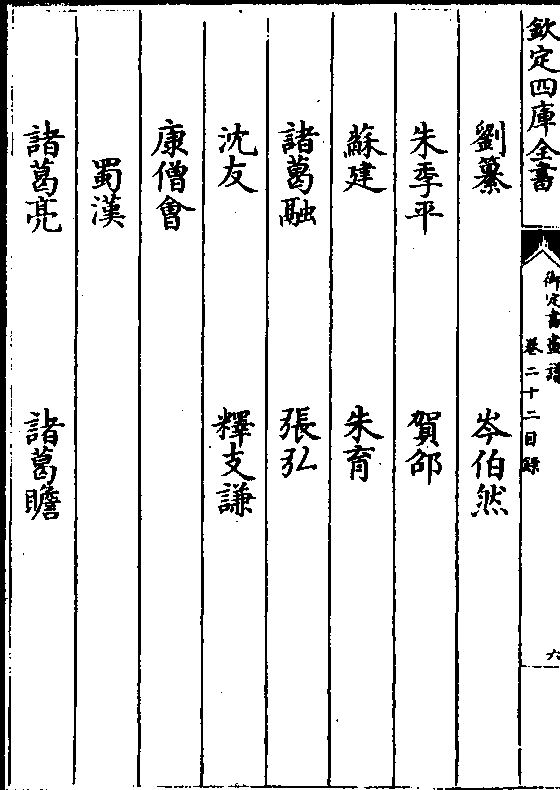 欽定四庫全書
御定書畫譜
卷二十二目錄
六
劉纂　岑伯然
朱季平　賀邵
蘇建　朱育
諸葛融　張弘
沈友　釋支謙
康僧會
蜀漢
諸葛亮　諸葛瞻